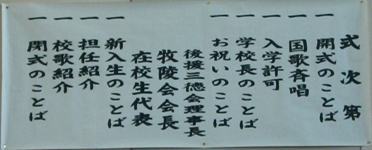 式次第
一 開式のことば
一 国歌斉唱
一 入学許可
一 学校長のことば
一 お祝いのことば
後援三徳会理事長
牧陵会会長
在校生代表
一 新入生のことば
一 担任紹介
一 校歌紹介
一 閉式のことば